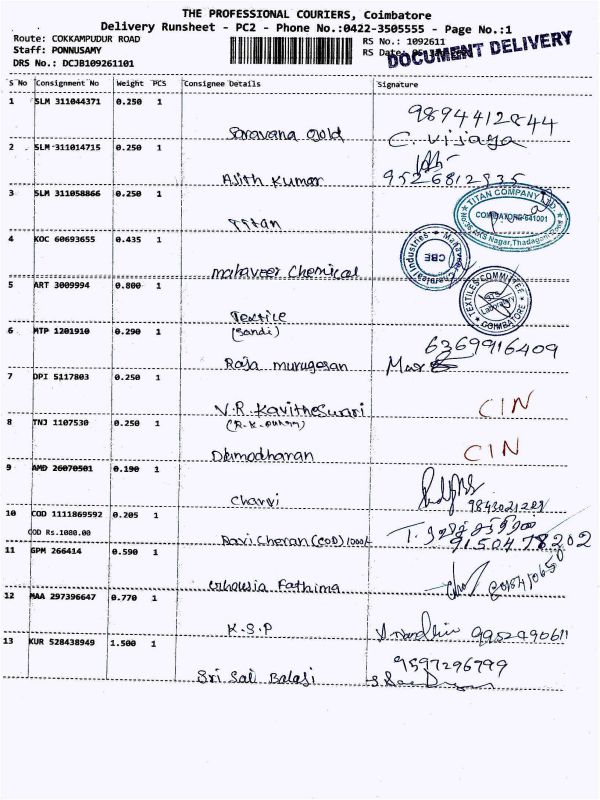 THE PROFESSIONAL COURIERS, Coimbatore
Delivery Runsheet - PC2 - Phone No.:0422-3505555 - Page No.:1
Route: COKKAMPUDUR ROAD
RS No.: 1092611
Staff: PONNUSAMY
RS Date:
DOCUMENT DELIVERY
DRS No.: DCJB109261101
S No Consignment No Weight PCS Consignee Details Signature
1 SLM 311044371 0.250 1
Saravana Gold 9894412844
C. Vijaya
2 SLM 311014715 0.250 1
Ajith Kumar 9526812835
3 SLM 311058866 0.250 1
Titan
TITAN COMPANY LTD.
COIMBATORE-641001
4 KOC 60693655 0.435 1
Mahaveer Chemical
Mahaveer Chemical Industries
CBE
5 ART 3009994 0.800 1
Textile
TEXTILES COMMITTEE
Laboratory
COIMBATORE
6 MTP 1201910 0.290 1
(Sandi)
Raja murugesan 6369916409
7 DPI 5117803 0.250 1
V.R. Kavitheswari CIN
8 TNJ 1107530 0.250 1
CIN
9 AMD 26070501 0.190 1
Charvi
10 COD 1111869592 0.205 1
COD Rs.1000.00
Ravi Cheran (COD) 1000/- 9150478202
11 GPM 266414 0.590 1
Fathima
12 MAA 297396647 0.770 1
K.S.P 9952490611
13 KUR 528438949 1.500 1
Sri Sai Balaji 9597296799